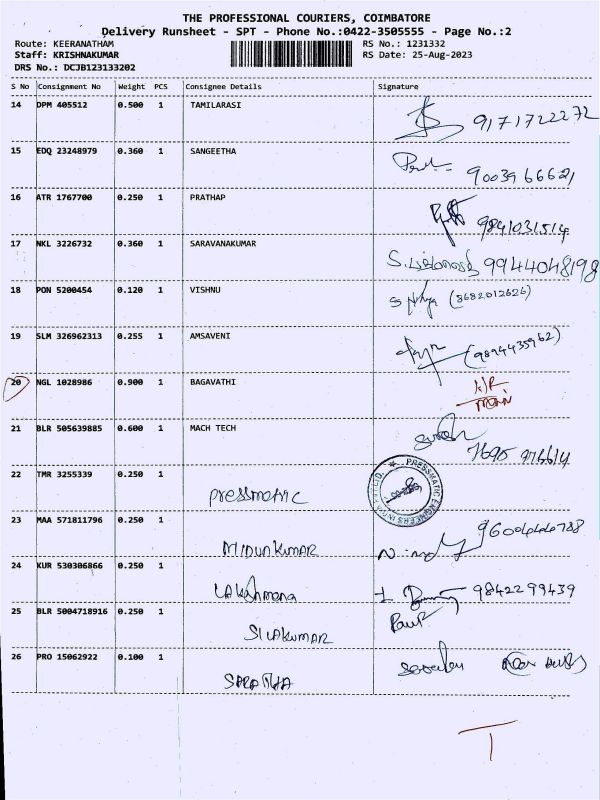 THE PROFESSIONAL COURIERS, COIMBATORE
Delivery Runsheet - SPT - Phone No.:0422-3505555 - Page No.:2
Route: KEERANATHAM RS No.: 1231332
Staff: KRISHNAKUMAR RS Date: 25-Aug-2023
DRS No.: DCJB123133202
S No Consignment No Weight PCS Consignee Details Signature
14 DPM 405512 0.500 1 TAMILARASI 9171722272
15 EDQ 23248979 0.360 1 SANGEETHA 9003966621
16 ATR 1767700 0.250 1 PRATHAP 9841031514
17 NKL 3226732 0.360 1 SARAVANAKUMAR 9944048198
18 PON 5200454 0.120 1 VISHNU (8682012626)
19 SLM 326962313 0.255 1 AMSAVENI (9894435962)
20 NGL 1028986 0.900 1 BAGAVATHI
21 BLR 505639885 0.600 1 MACH TECH
22 TMR 3255339 0.250 1 Pressmatric
23 MAA 571811796 0.250 1 MIDUNKUMAR
24 KUR 530306866 0.250 1 LAKshmana 9842299439
25 BLR 5004718916 0.250 1 SIVAKUMAR
26 PRO 15062922 0.100 1 SARATHA
T